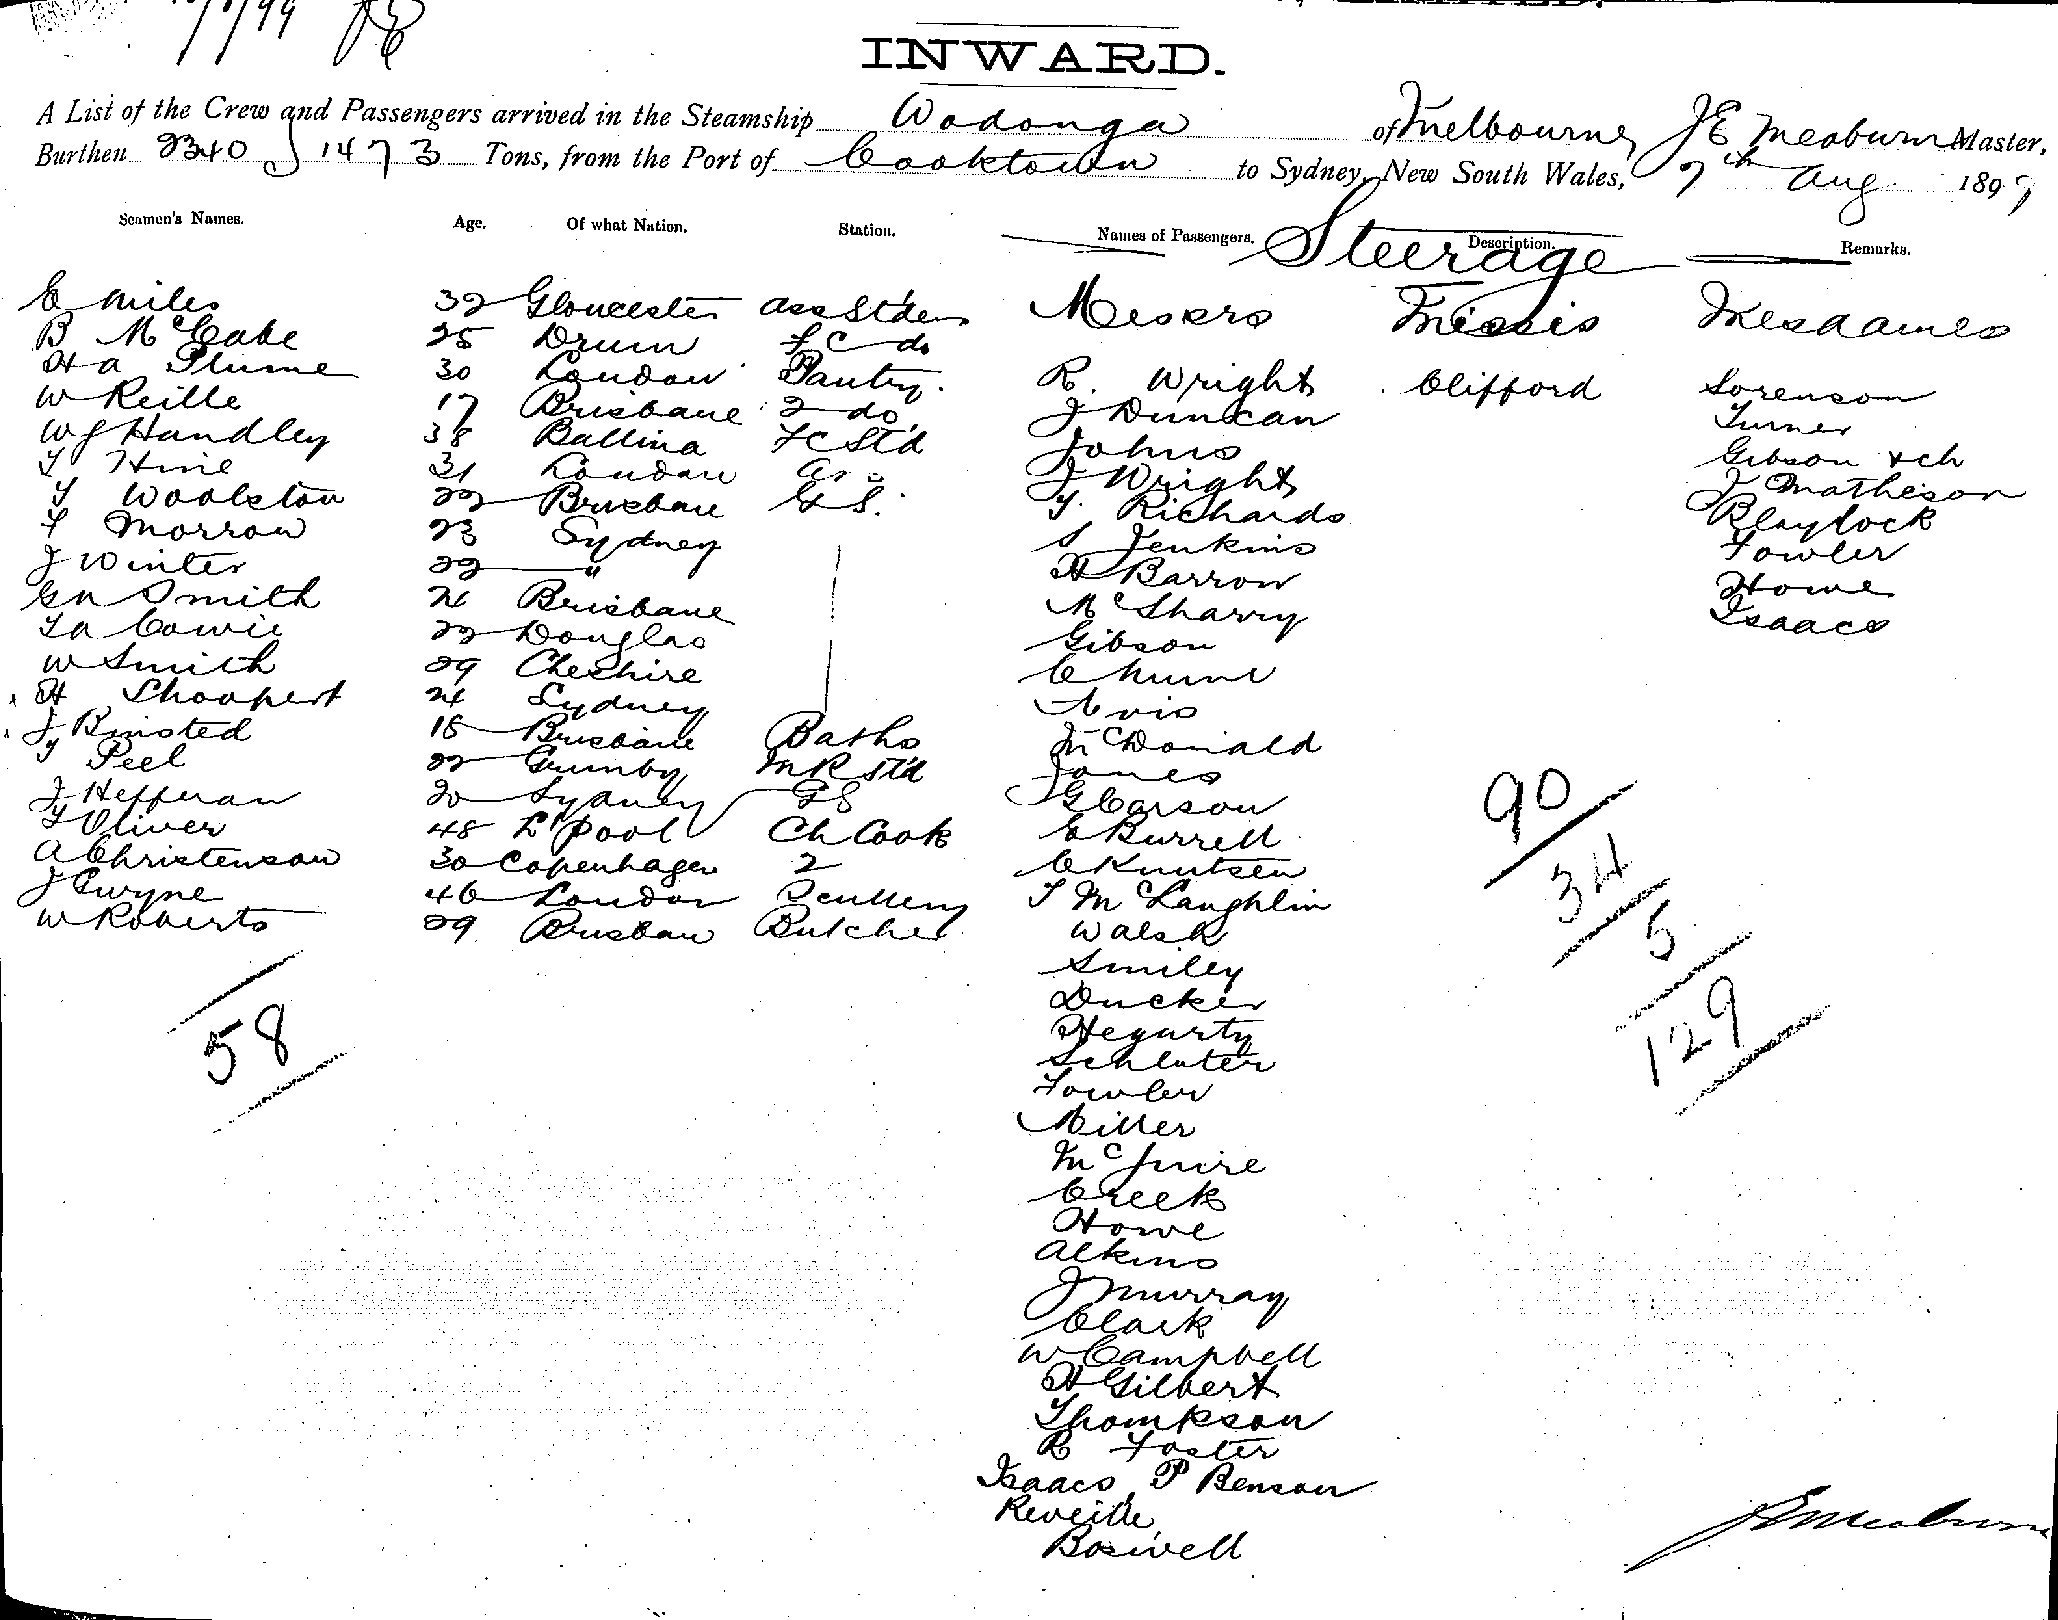 INWARD.
A List of the Crew and Passengers arrived in the Steamship Wodonga of Melbourne, J E Meaburn Master,
Burthen 2340 1473 Tons, from the Port of Cooktown to Sydney, New South Wales, 7th Aug 1897
Seamen's Names. Age. Of what Nation. Station. Names of Passengers. Description. Remarks.
Steerage
C Miles 32 Gloucester Ass St'd
B McCabe 25 Drum F C do
H A Plume 30 London Pantry
W Reille 17 Brisbane 2 do
W J Handley 38 Ballina FC St'd
T Hine 31 London
T Woolston 22 Brisbane G S.
F Morrow 23 Sydney
J Winter 22 "
G N Smith 21 Brisbane
T A Cowie 22 Douglas
W Smith 29 Cheshire
H Shoopert 24 Sydney
J Binsted 18 Brisbane Baths
T Peel 22 Grimby M R St'd
J Hefferan 20 Sydney G S
T Oliver 48 L'pool Ch Cook
A Christenson 30 Copenhagen 2
J Gwyne 46 London Scullery
W Roberts 29 Brisban Butcher
58
Messrs
R. Wright
J Duncan
Johns
J Wright
T. Richards
S Jenkins
H Barrow
McSharry
Gibson
C Nunn
Avis
McDonald
Jones
G Carson
E Burrell
C Knutsen
T McLaughlin
Walsh
Smiley
Ducker
Hegarty
Schluter
Fowler
Miller
McGuire
Creek
Howe
Alkins
J Murray
Clark
W Campbell
H Gilbert
Thompson
R Foster
Isaacs, P Benson
Reveille,
Boswell
Misses
Clifford
Mesdames
Sorenson
Turner
Gibson + ch
J Matheson
Blaylock
Fowler
Howe
Isaacs
90
34
5
129
J E Meaburn